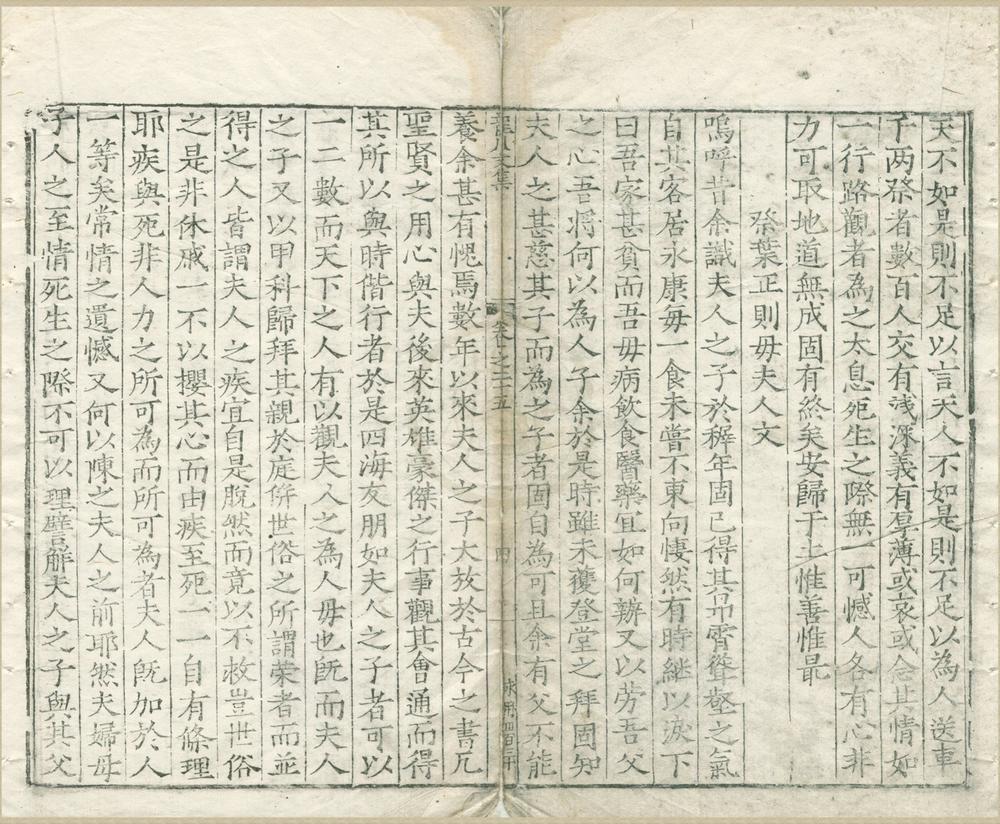 天不如是則不足以言天人不如是則不足以為人送車
千两祭者數百人交有淺深義有厚薄或哀或念其情如
一行路觀者為之太息死生之際無一可憾人各有心非
力可取地道無成固有終矣安歸于土惟善惟最
祭葉正則母夫人文
嗚呼昔余識夫人之子於穉年固已得其昂霄聳壑之氣
自其客居永康毎一食未嘗不東向悽然有時継以淚下
曰吾家甚貧而吾毋病飲食醫藥宜如何辨又以劳吾父
之心吾将何以為人子余於是時雖未獲登堂之拜固知
夫人之甚慈其子而為之子者固自為可且余有父不能
龍川文集
卷之二十五
四
養余甚有愧焉數年以來夫人之子大放於古今之書凡
聖賢之用心與夫後來英雄豪傑之行事觀其會通而得
其所以與時偕行者於是四海友朋如夫人之子者可以
一二數而天下之人有以觀夫人之為人毋也旣而夫人
之子又以甲科歸拜其親於庭俯世俗之所謂榮者而並
得之人皆謂夫人之疾宜自是脫然而竟以不救豈世俗
之是非休戚一不以攖其心而由疾至死一一自有條理
耶疾與死非人力之所可為而所可為者夫人旣加於人
一等矣常情之遺憾又何以陳之夫人之前耶然夫婦母
子人之至情死生之際不可以理譬解夫人之子與其父